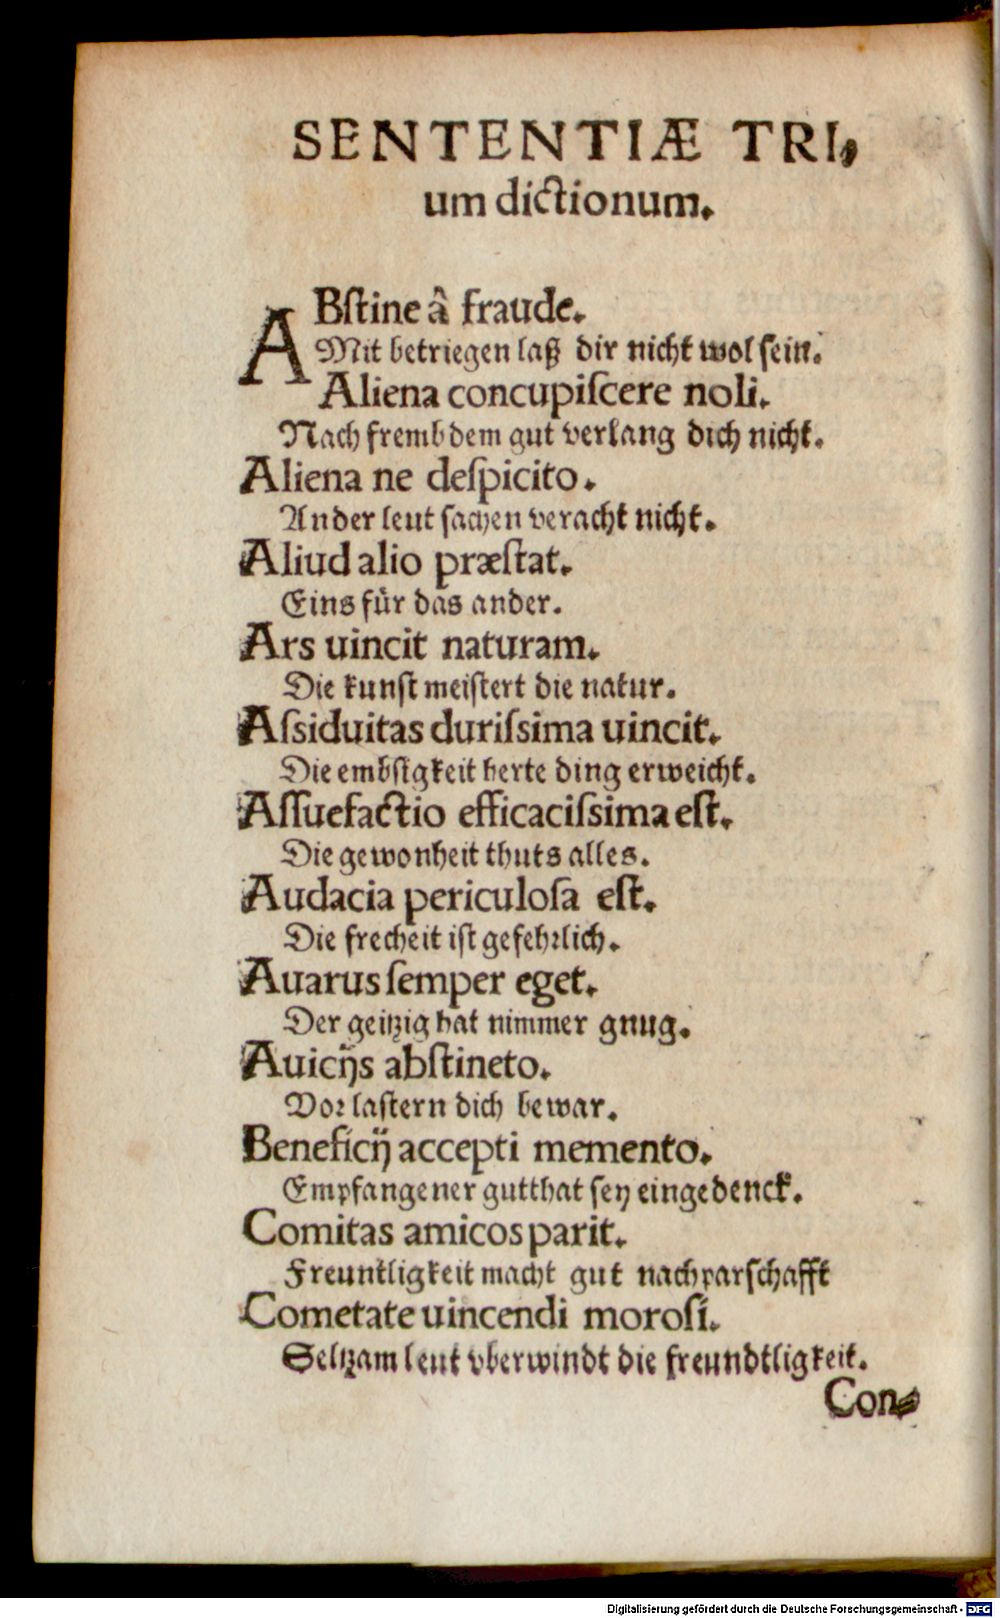 SENTENTIÆ TRI-
um dictionum.
ABſtine â fraude.
Mit betriegen laß dir nicht wol ſein.
Aliena concupiſcere noli.
Nach frembdem gut verlang dich nicht.
Aliena ne deſpicito.
Ander leut ſachen veracht nicht.
Aliud alio præſtat.
Eins für das ander.
Ars uincit naturam.
Die kunſt meiſtert die natur.
Aſsiduitas duriſsima uincit.
Die embſigkeit herte ding erweicht.
Aſſuefactio efficaciſsima eſt.
Die gewonheit thuts alles.
Audacia periculoſa eſt.
Die frecheit iſt gefehꝛlich.
Auarus ſemper eget.
Der geitzig hat nimmer gnug.
A uicijs abſtineto.
Voꝛ laſtern dich bewar.
Beneficij accepti memento.
Empfangener gutthat ſey eingedenck.
Comitas amicos parit.
Freuntligkeit macht gut nachparſchafft
Cometate uincendi moroſi.
Seltzam leut vberwindt die freundtligkeit.
Con-
Digitalisierung gefördert durch die Deutsche Forschungsgemeinschaft - DFG